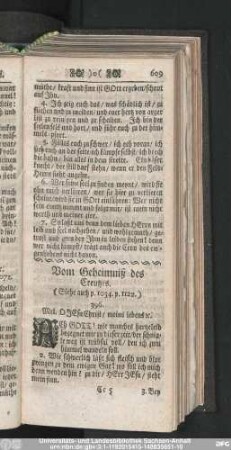 )o(
609
müthe/ krafft und sinn ist GOtt ergeben/ schaut
auf Ihn.
4. Ich zeig euch das/ was schädlich ist/ zu
fliehen und zu meiden/ und euer hertz von arger
list zu reingen und zu scheiden. Ich bin der
seelen fels und hort/ und führ euch zu der himmels pfort.
5. Fällts euch zu schwer/ ich geh voran/ ich
steh euch an der seite/ ich kämpfe selbst/ ich brech
die bahn/ bin alles in dem streite. Ein böser
knecht/ der still darf stehn/ wenn er den Feldherrn sieht angehn.
6. Wer seine seel zu finden meynt/ wird sie
ohn mich verlieren/ wer sie hier zu verlieren
scheint/ wird sie in GOtt einführen. Wer nicht
sein creutz nimmt und folgt mir/ ist mein nicht
werth und meiner zier.
7. So laßt uns denn dem lieben HErrn mit
leib und seel nachgehen/ und wohlgemuth/ getrost und gern bey Ihm im leiden stehen! denn
wer nicht kämpft/ trägt auch die cron des ewgen lebens nicht davon.
Vom Geheimniß des
Creutzes.
(Siehe auch p. 1034. p. 1122.)
796.
Mel. O JEsu Christ/ meins lebens
ACh GOTT/ wie manches hertzeleid
begegnet mir zu dieser zeit/ der schmale weg ist trübsal voll/ den ich zum
himmel wandern soll.
2. Wie schwerlich läßt sich fleisch und blut
zwingen zu dem ewigen Gut/ wo soll ich mich
denn wenden hin? zu dir/ HErr JEsu/ steht
mein sinn.
3. Bey
Universitäts- und Landesbibliothek Sachsen-Anhalt